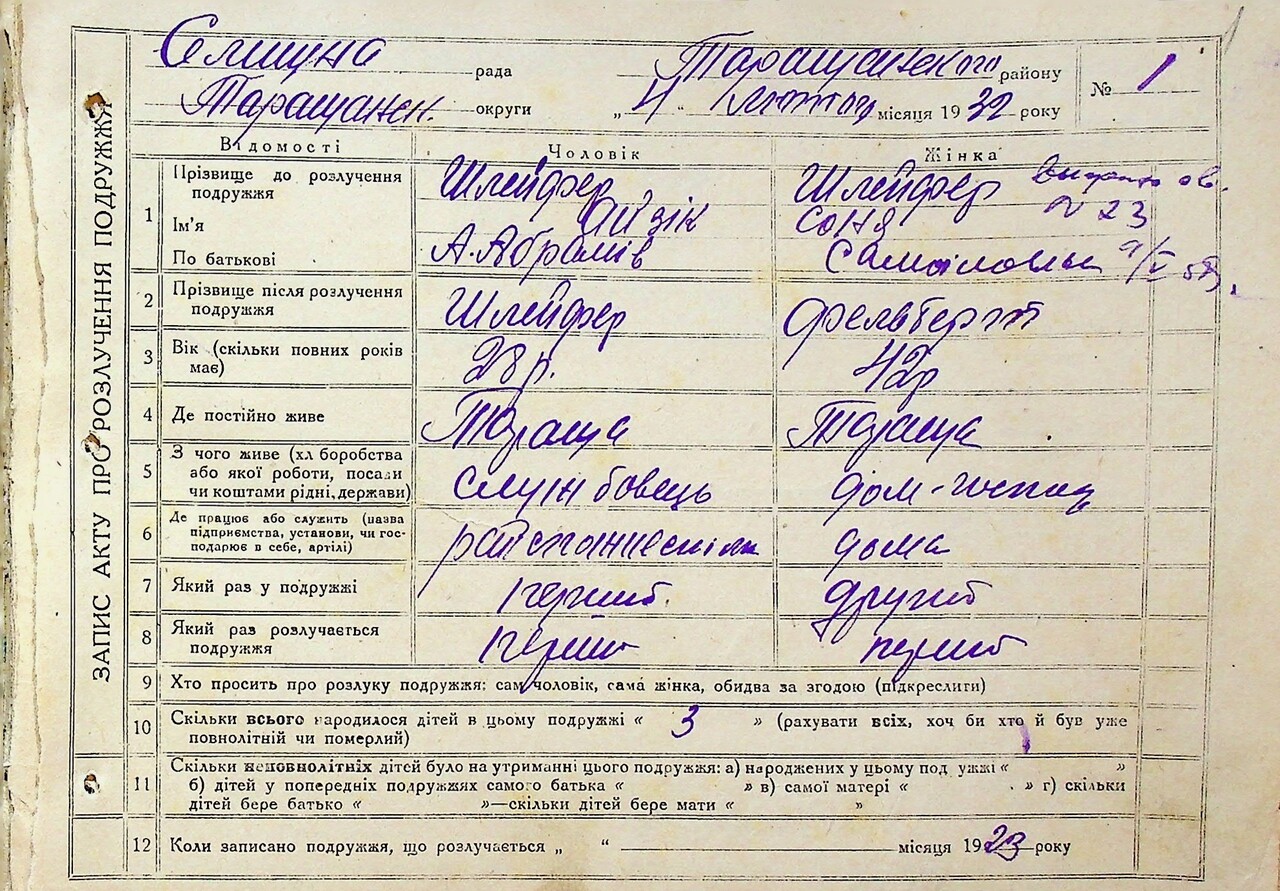 ЗАПИС АКТУ ПРО РОЗЛУЧЕННЯ ПОДРУЖЖЯ
Селищна рада Таращанського району № 1
Таращанськ. округи „ 4 “ лютого місяця 1932 року
Відомості Чоловік Жінка
1 Прізвище до розлучення подружжя Шлейфер Шлейфер
Ім'я Айзік Соня № 23
По батькові А. Абрамів Самойловна 9/V
2 Прізвище після розлучення подружжя Шлейфер Фельберг
3 Вік (скільки повних років має) 28 р. 42 р
4 Де постійно живе Тараща Тараща
5 З чого живе (хл боробства або якої роботи, посади чи коштами рідні, держави) службовець дом-господ
6 Де працює або служить (назва підприємства, установи, чи господарює в себе, артілі) дома
7 Який раз у подружжі перший другий
8 Який раз розлучається подружжя перший перший
9 Хто просить про розлуку подружжя: сам чоловік, сама жінка, обидва за згодою (підкреслити)
10 Скільки всього народилося дітей в цьому подружжі « 3 » (рахувати всіх, хоч би хто й був уже
повнолітній чи померлий)
11 Скільки неповнолітніх дітей було на утриманні цього подружжя: а) народжених у цьому под ужжі « »
б) дітей у попередніх подружжях самого батька « » в) самої матері « » г) скільки
дітей бере батько « »—скільки дітей бере мати « »
12 Коли записано подружжя, що розлучається „ “ місяця 1923 року